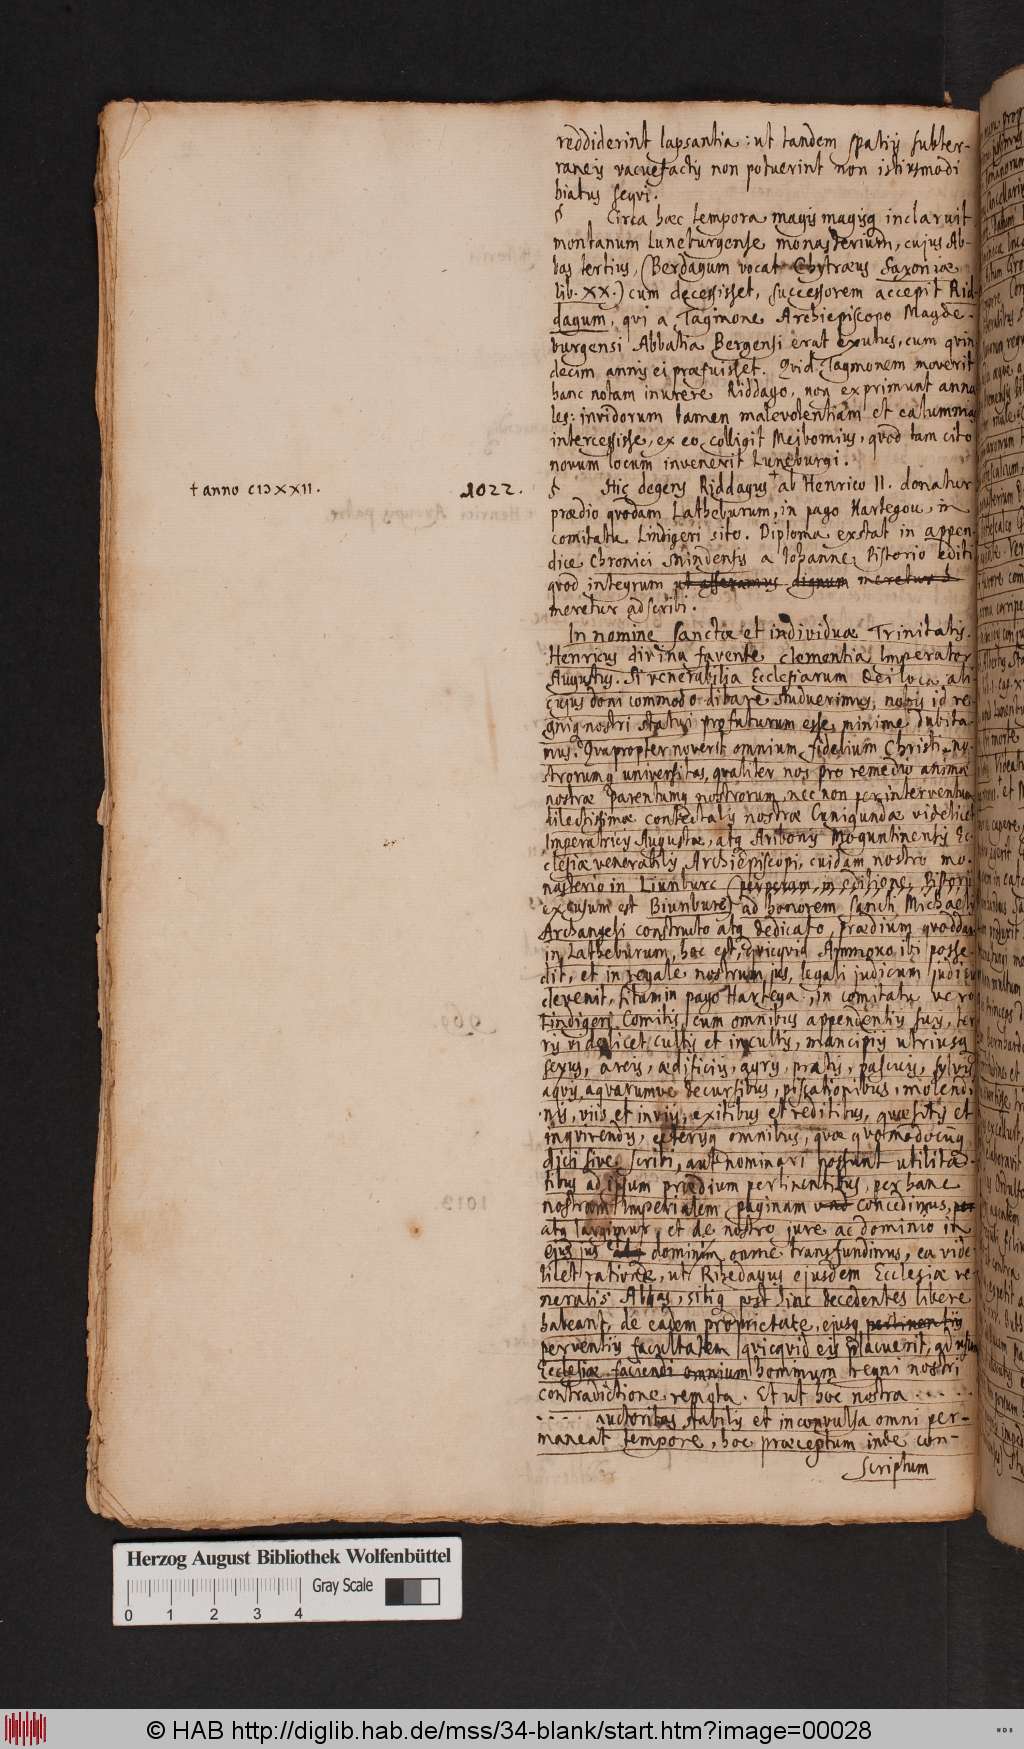 reddiderint lapsantia: ut tandem spatijs subter-
raneis vacuefactis non potuerint non istiusmodi
hiatus seqvi.
Circa hæc tempora magis magisq inclaruit
montanum Luneburgense monasterium, cujus Ab-
bas tertius, (Berdagum vocat Chytræus Saxoniæ
lib. XX.) cum decessisset, successorem accepit Rid-
dagum, qvi a Tagmone Archiepiscopo Magde-
burgensi Abbatia Bergensi erat exutus, cum qvin
decim annis ei præfuisset. Qvid Tagmonem moverit
hanc notam inurere Riddago, non exprimunt anna
les: invidorum tamen malevolentiam et calumnia
intercessisse, ex eo colligit Meibomius, qvod tam cito
novum locum invenerit Luneburgi.
† anno CIↃXXII. 1022.
Hic degens Riddagus † ab Henrico II. donatur
prædio qvodam Latheburum, in pago Hartegou, in
comitatu Lindigeri sito. Diploma exstat in appen-
dice Chronici Mindensis a Johanne Pistorio editi
qvod integrum ut afferamus dignum meretur
meretur adscribi.
In nomine Sanctæ et individuæ Trinitatis.
Henricus divina favente clementia Imperator
Augustus. Si venerabilia Ecclesiarum Dei loca ali
cujus doni commodo ditare studuerimus, nobis id re-
gniq nostri statui profuturum esse, minime dubita-
mus. Qvapropter noverit omnium fidelium Christi no-
strorumq universitas, qvaliter nos pro remedio animæ
nostræ Parentumq nostrorum, nec non per interventum
dilectissimæ contectalis nostræ Cunigundæ videlicet
Imperatricis Augustæ, atq Aribonis Moguntinensis Ec-
clesiæ venerabilis Archiepiscopi, cuidam nostro mo-
nasterio in Liunburc (perperam in editione Pistorij
excusum est Biunburc) ad honorem Sancti Michaelis
Archangeli constructo atq dedicato, prædium qvoddam
in Latheburum, hoc est, qvicqvid Ammoxo ibi posse-
dit, et in regale nostrum jus, legali judicum judicio
devenit, situm in pago Hartega, in comitatu vero
Lindigeri Comitis, cum omnibus appendentijs suis, ter
ris videlicet cultis et incultis, mancipijs utriusq
sexus, areis, ædificijs, agris, pratis, pascuis, sylvis
aqvis, aqvarumve decursibus, piscationibus, molendi-
nis, viis et invijs, exitibus et reditibus, qvæsitis et
inqvirendis, ceterisq omnibus, qvæ qvomodocunq
dici sive scribi, aut nominari possunt utilita-
tibus ad ipsum prædium pertinentibus, per hanc
nostram Imperialem paginam concedimus,
atq largimur, et de nostro jure ac dominio in
ejus jus et dominium omne transfundimus, ea vide
licet ratione, ut Rihedagus ejusdem Ecclesiæ ve
nerabilis Abbas, sitiq post hinc decedentes libere
habeant, de eadem proprietate, ejusq pertinentijs
perventijs facultatem qvicqvid eis placuerit, ad usum
Ecclesiæ faciendi omnium hominum regni nostri
contradictione remota. Et ut hoc nostra . . . . .
. . . . auctoritas stabilis et inconvulsa omni per-
maneat tempore, hoc præceptum inde con-
scriptum
Herzog August Bibliothek Wolfenbüttel
Gray Scale
0 1 2 3 4
© HAB http://diglib.hab.de/mss/34-blank/start.htm?image=00028
HAB